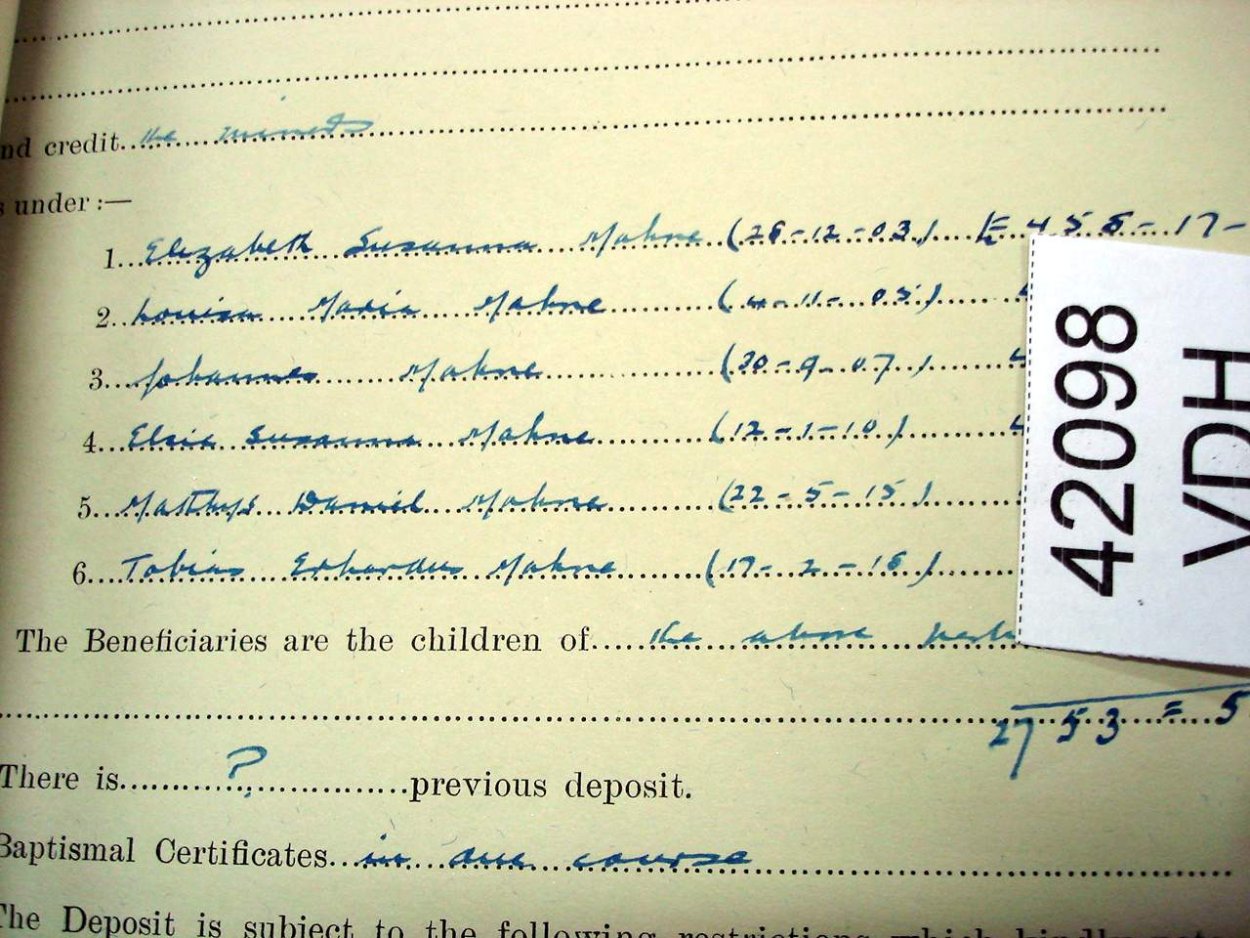 nd credit the minors
s under :—
1. Elizabeth Susanna Mahne (26-12-03) £ 4 5 8 - 17 -
2. Louisa Maria Mahne (4-11-05)
3. Johannes Mahne (20-9-07)
4. Elsie Susanna Mahne (12-1-10)
5. Matthys Daniel Mahne (22-5-15)
6. Tobias Erhardus Mahne (17-2-18)
The Beneficiaries are the children of the above
2753 = 5
There is ? previous deposit.
Baptismal Certificates in due course
The Deposit is subject to the following restrictions which kindly note
42098
VDH